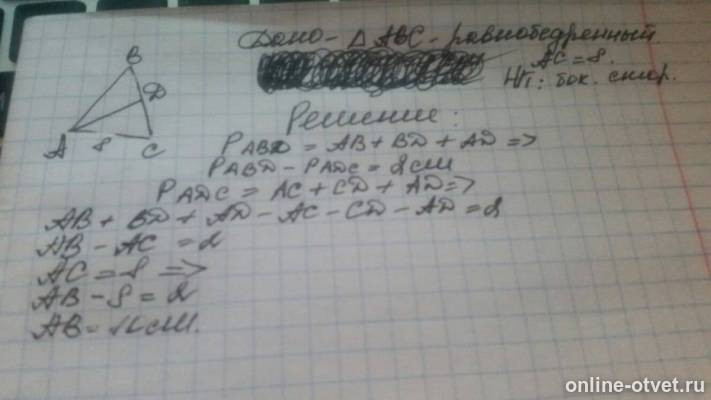 Дано - Δ ABC - равнобедренный.
AC = 8.
Нт: бок. стор.
B
D
A 8 C
Решение:
P ABD = AB + BD + AD =>
P ABD - P ADC = 2 см
P ADC = AC + CD + AD =>
AB + BD + AD - AC - CD - AD = 2
AB - AC = 2
AC = 8 =>
AB - 8 = 2
AB = 10 см.
online-otvet.ru